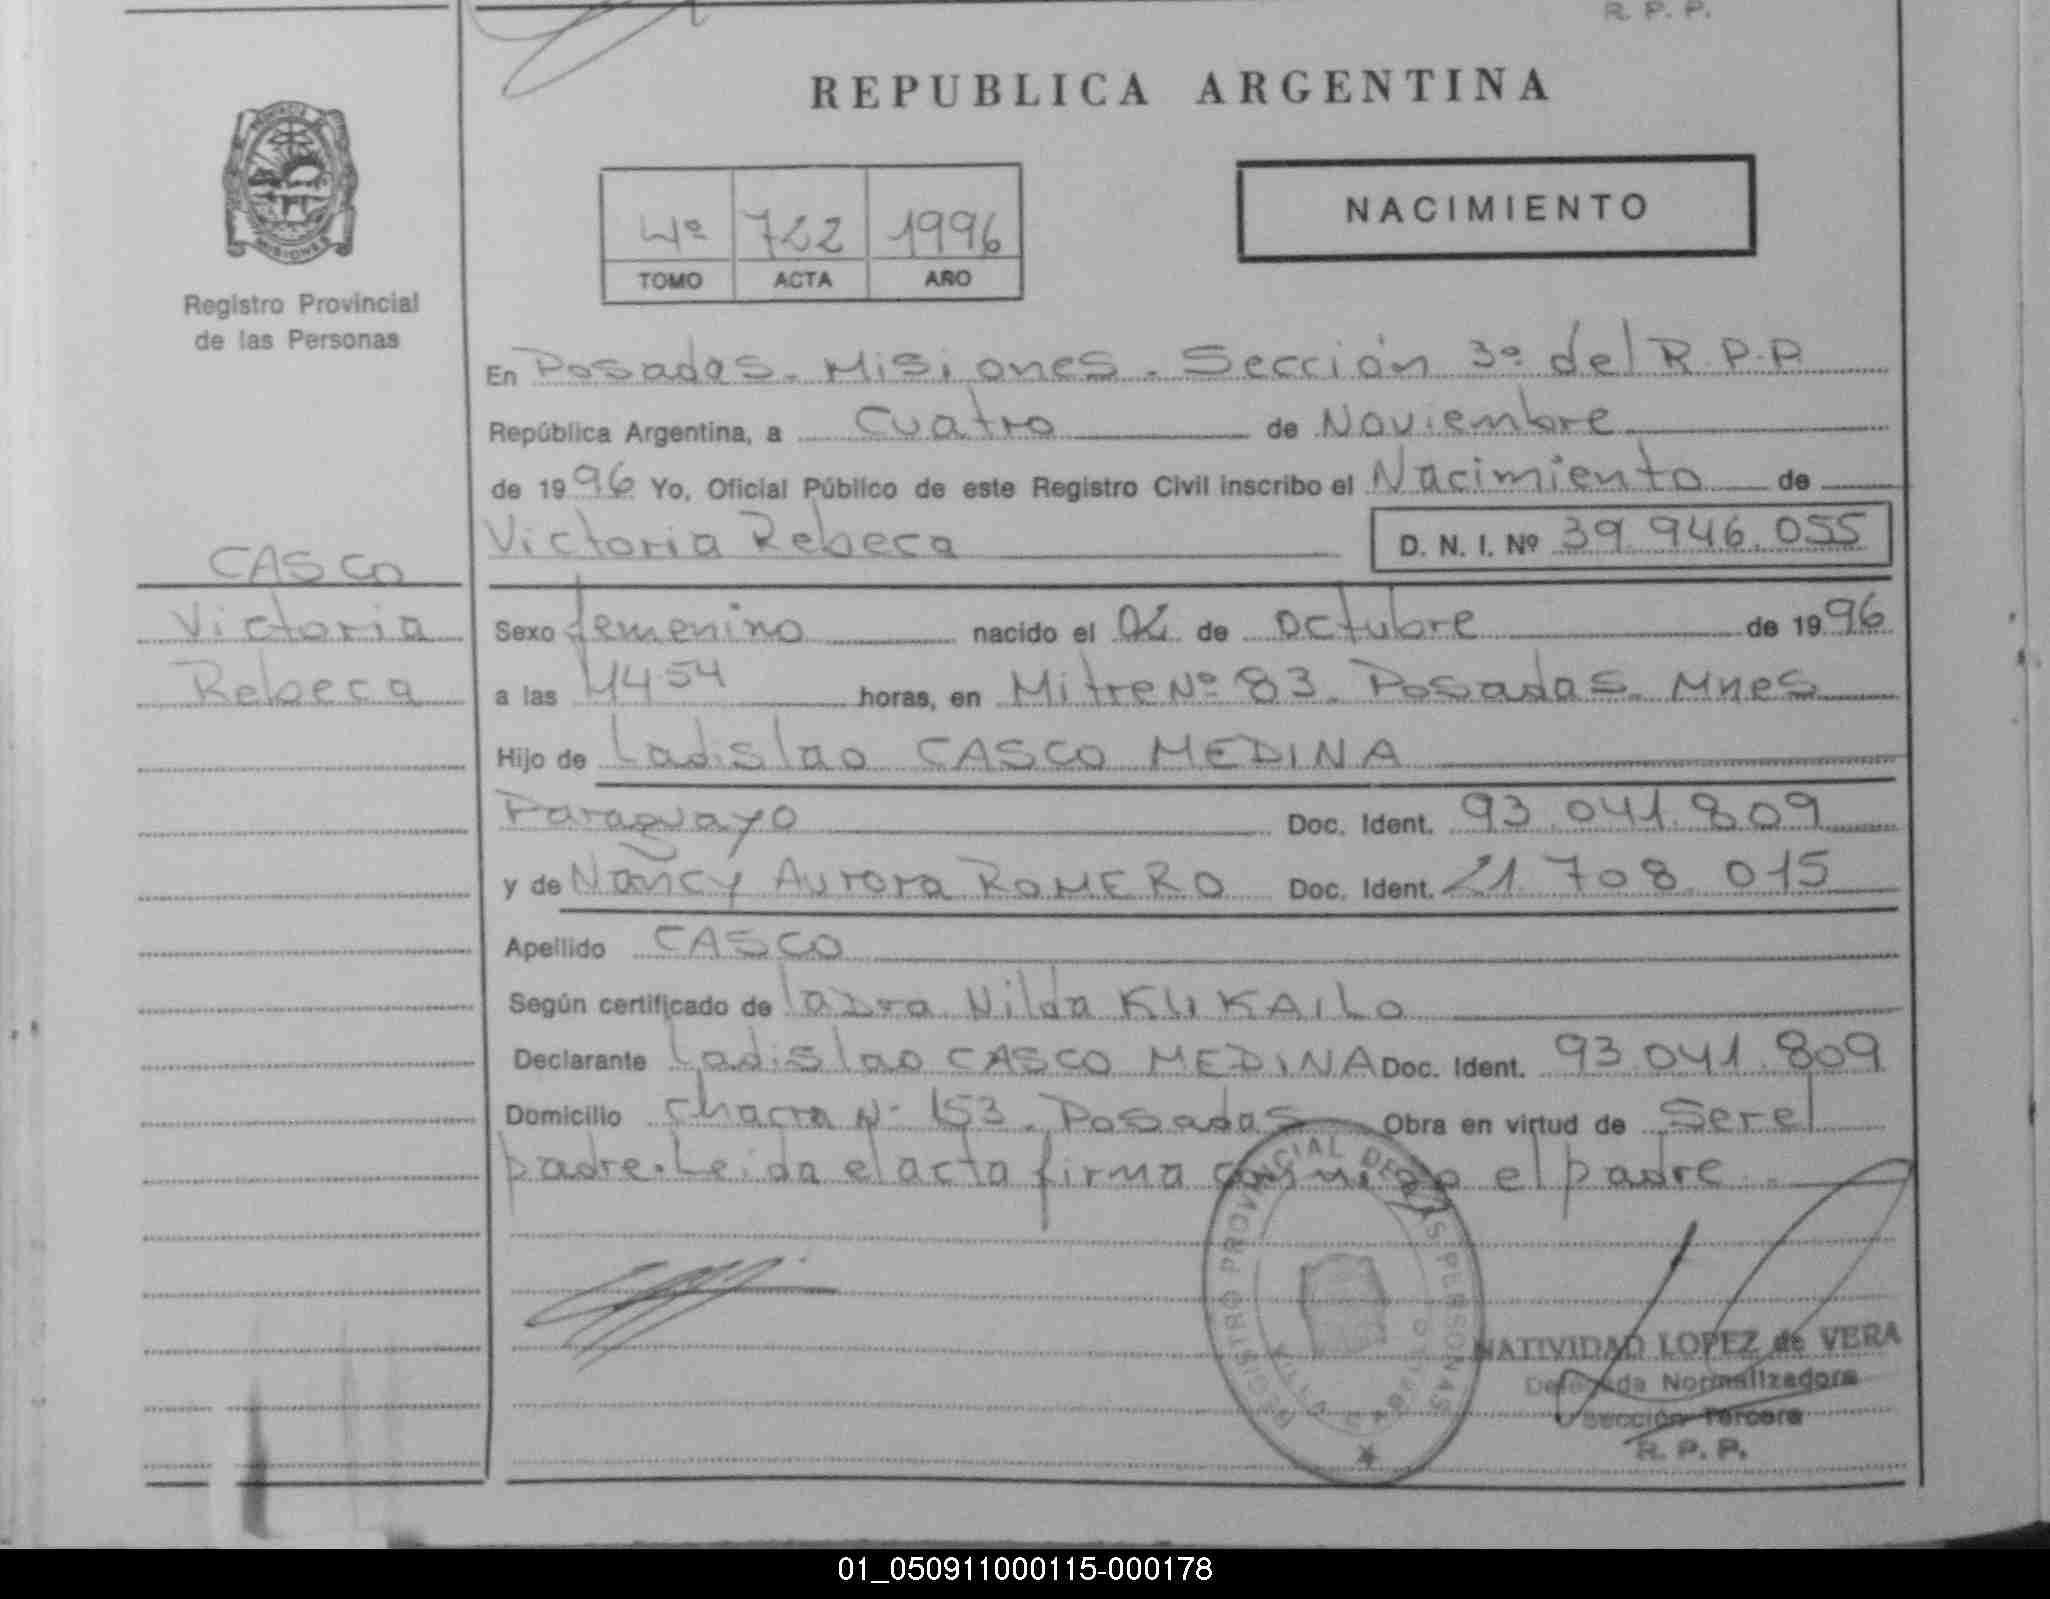 R. P. P.
REPUBLICA ARGENTINA
PROVINCIA DE MISIONES
4º 722 1996
TOMO ACTA AÑO
NACIMIENTO
Registro Provincial
de las Personas
En Posadas. Misiones. Sección 3º del R.P.P.
República Argentina, a Cuatro de Noviembre
de 1996 Yo, Oficial Público de este Registro Civil inscribo el Nacimiento de
Victoria Rebeca D. N. I. Nº 39.946.055
CASCO
Victoria
Rebeca
Sexo femenino nacido el de octubre de 1996
a las horas, en Mitre Nº 83. Posadas. Mnes
Hijo de Ladislao CASCO MEDINA
Paraguayo Doc. Ident. 93.041.809
y de Nancy Aurora ROMERO Doc. Ident. 21.708.015
Apellido CASCO
Según certificado de la Dra Nilda
Declarante Ladislao CASCO MEDINA Doc. Ident. 93.041.809
Domicilio Chacra Nº 153. Posadas Obra en virtud de Ser el
padre. Leida el acta firma conmigo el padre.
REGISTRO PROVINCIAL DE LAS PERSONAS
VILLA CABELLO
NATIVIDAD LOPEZ de VERA
Delegada Normalizadora
Sección Tercera
R. P. P.
01_050911000115-000178